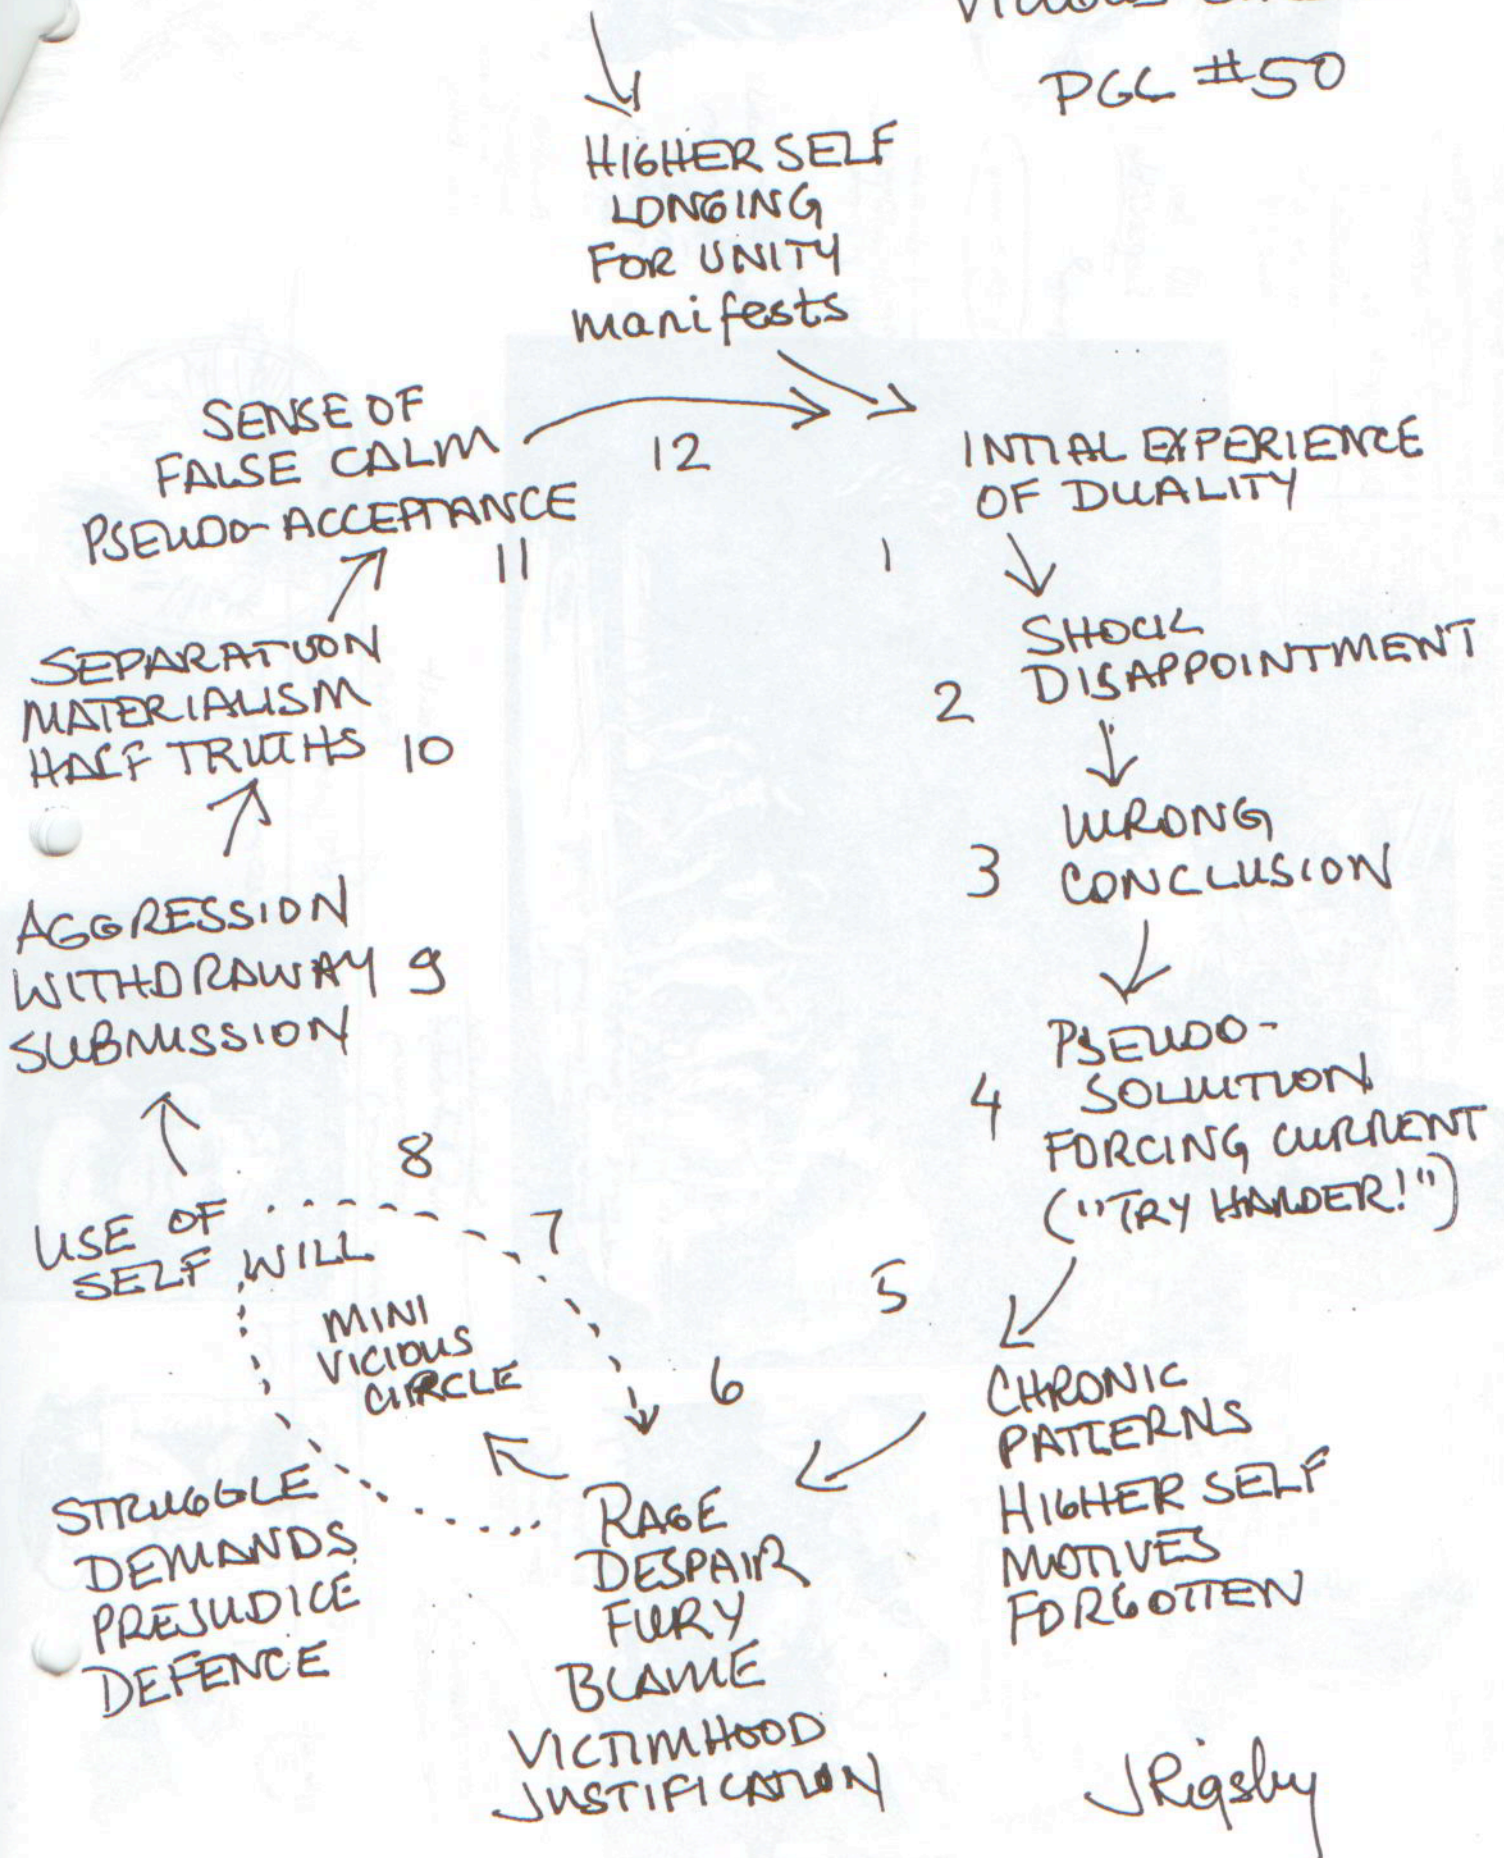 PGL #50
HIGHER SELF
LONGING
FOR UNITY
manifests
SENSE OF
FALSE CALM
PSEUDO-ACCEPTANCE
11
12
INTIAL EXPERIENCE
OF DUALITY
1
SHOCK
DISAPPOINTMENT
2
WRONG
CONCLUSION
3
PSEUDO-
SOLUTION
FORCING CURRENT
("TRY HARDER!")
4
5
CHRONIC
PATTERNS
HIGHER SELF
MOTIVES
FORGOTTEN
6
RAGE
DESPAIR
FURY
BLAME
VICTIMHOOD
JUSTIFICATION
7
MINI
VICIOUS
CIRCLE
STRUGGLE
DEMANDS
PREJUDICE
DEFENCE
8
USE OF
SELF WILL
AGGRESSION
WITHDRAWAY 9
SUBMISSION
SEPARATION
MATERIALISM
HALF TRUTHS 10
JRigsby